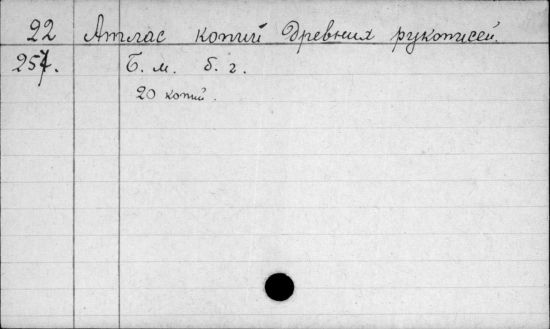 22 Атлас копий Древних рукописей.
257. Б. м. б. г.
20 копий.